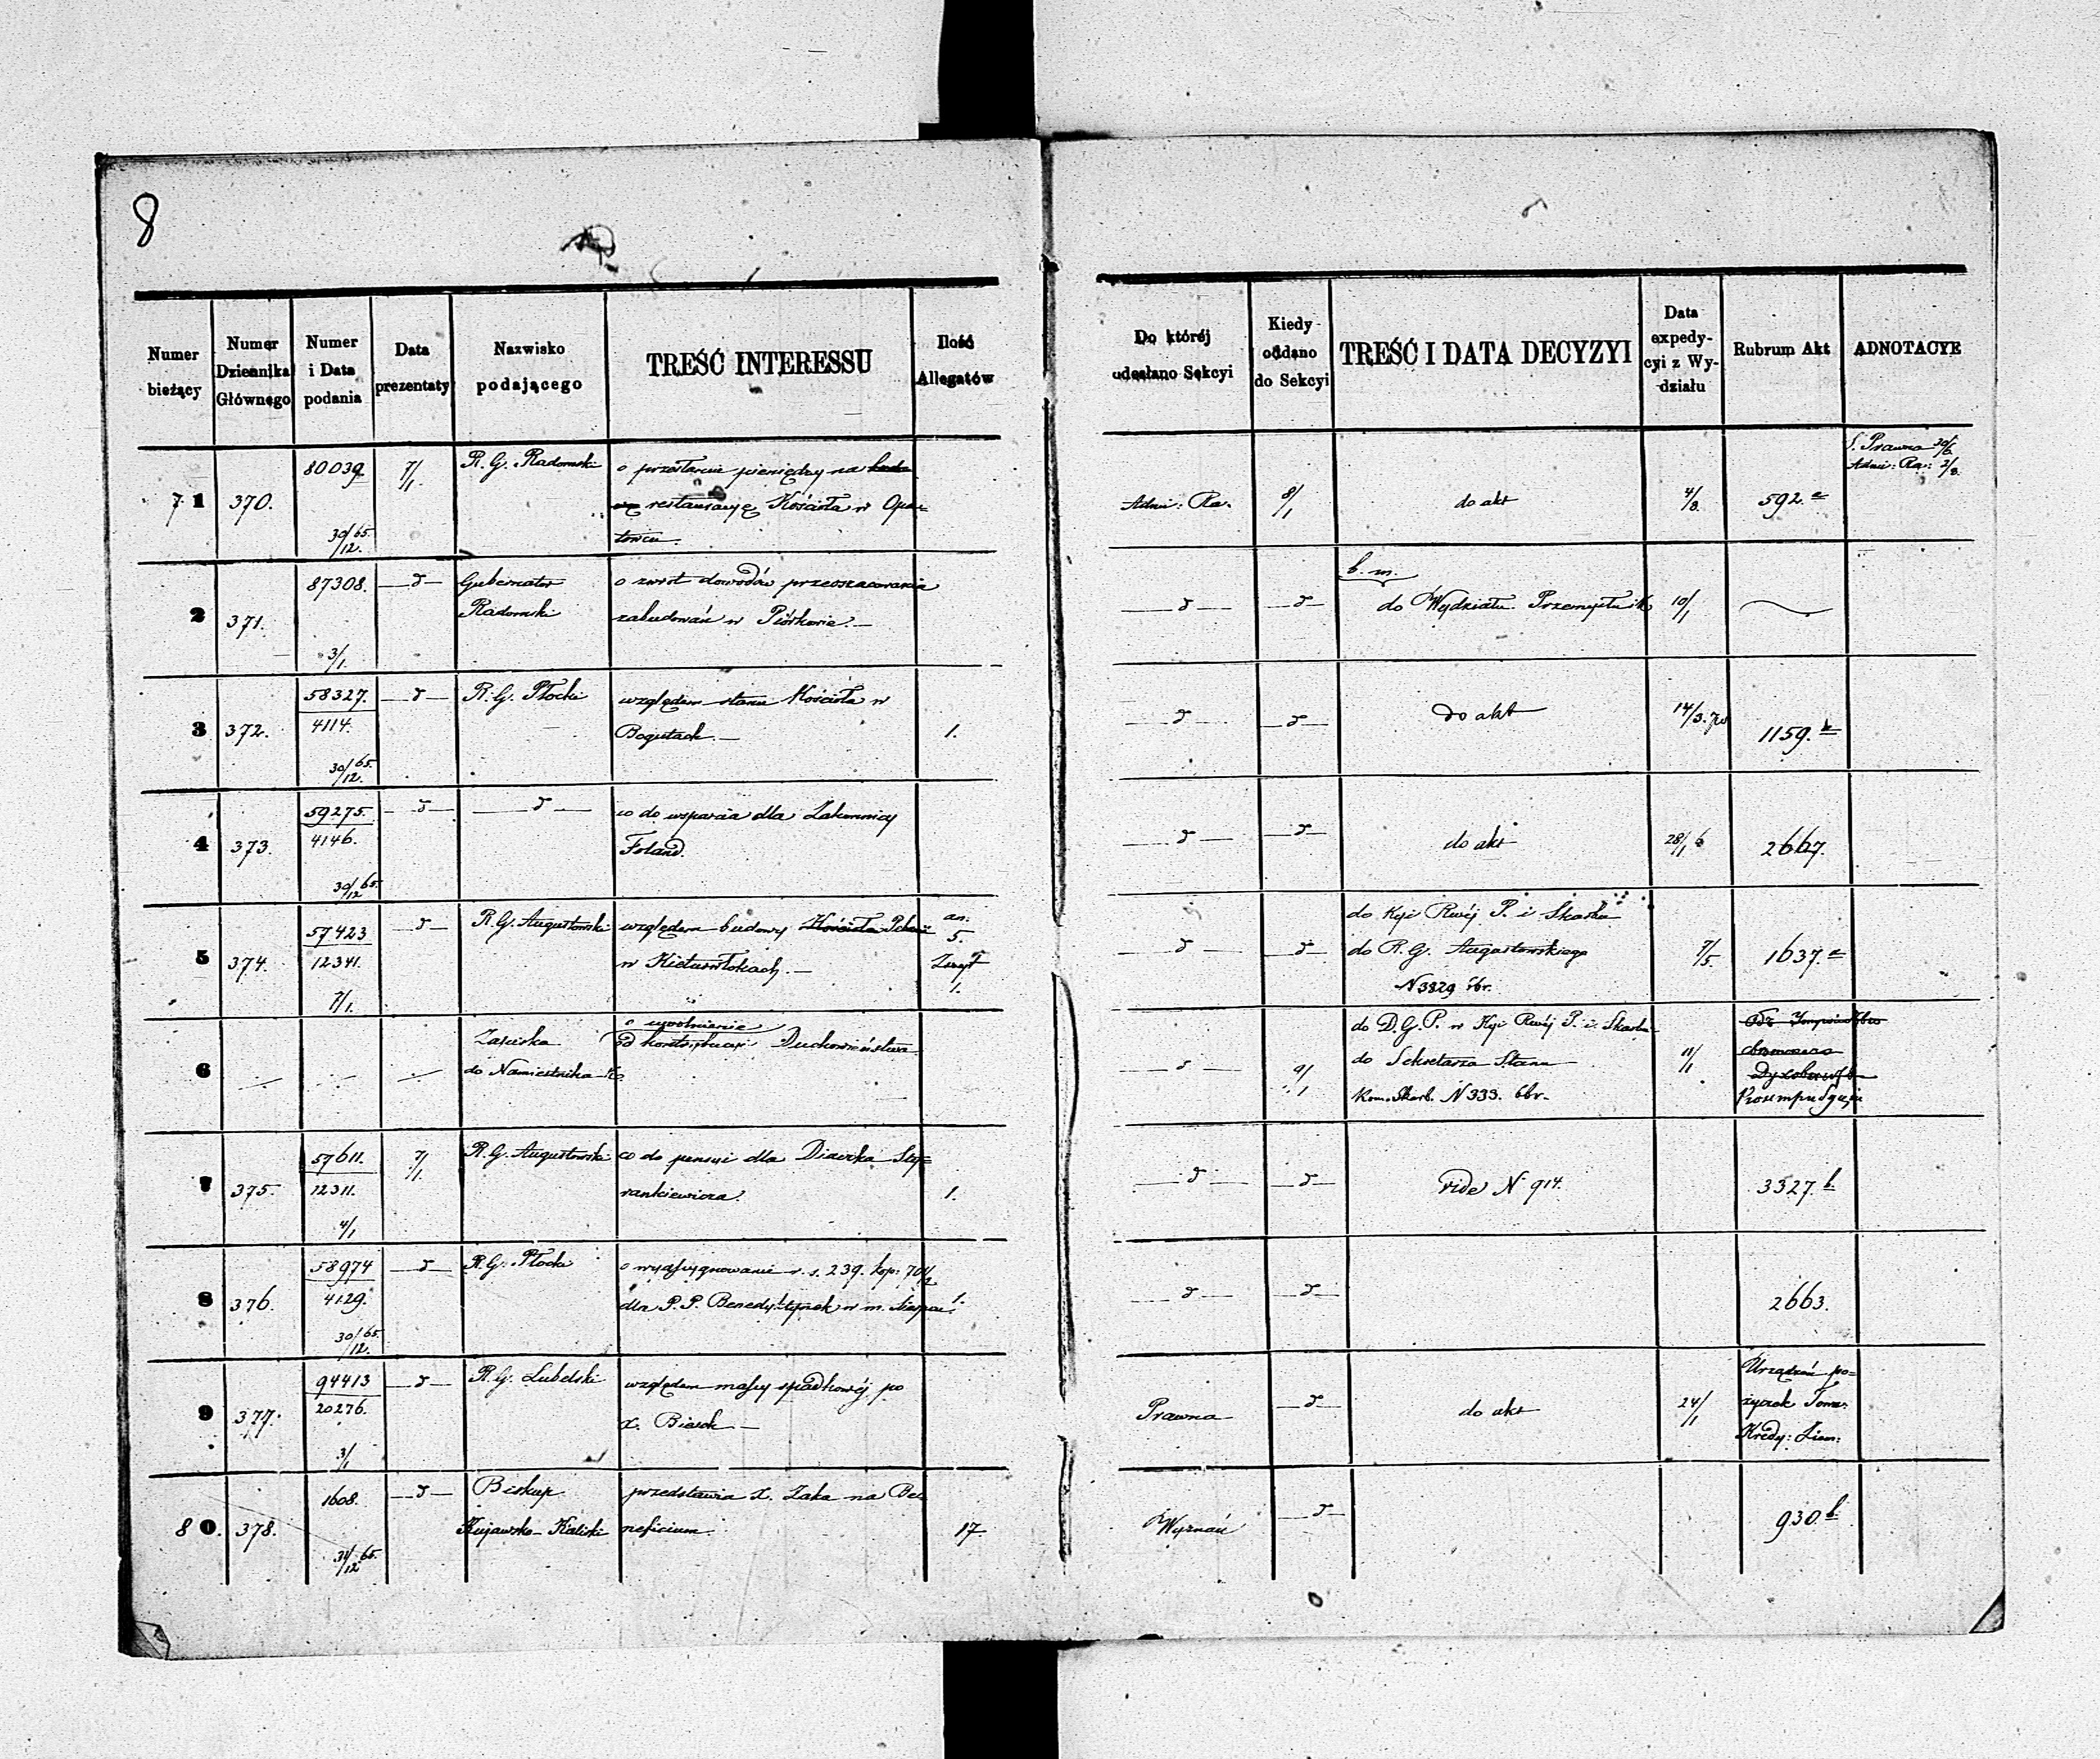 8
Numer bieżący
Numer Dziennika Głównego
Numer i Data podania
Data prezentaty
Nazwisko podającego
TREŚĆ INTERESSU
Ilość Allegatów
Do któréj udesłano Sekcyi
Kiedy oddano do Sekcyi
TREŚĆ I DATA DECYZYI
Data expedycyi z Wydziału
Rubrum Akt
ADNOTACYE
S. Prawna 30/6
Admi: Ra: 2/8.
71 370. 80039 30/12 65. 7/1. R. G. Radomski
o przesłanie pieniędzy na
restauracyę Kościoła w Opa=
towcu.
Admi: Ra. 8/1 do akt 4/8. 592. a
2 371. 87308. 3/1. d Gubernator Radomski
o zwrot dowodów przeoszacowania
zabudowań w Piórkowie.
d d b. m.
do Wydziału Przemysłu i K 10/1
3 372. 58327. 4114. 30/12. 65. d R. G. Płocki
względem stanu Kościoła w
Bogutach. 1.
d d do akt 14/3. 1159. b
4 373. 59275. 4146. 30/12 65. d d
co do wsparcia dla Zakonnicy
Foland.
d d do akt 28/1 6 2667.
5 374. 57423 12341. 7/1. d R. G. Augustowski
względem budowy Kościoła
w Kietuwłokach. an. 5. Zeszyt 1.
d d do Kyi Rwéj P. i Skarbu
do R. G. Augustowskiego
N 3829 br. 7/5. 1637. a
6 Zapiska
do Namiestnika K.
o uwolnienie
od kontrybucyi Duchowieństwa
d 9/1 do D. G. P. w Kyi Rwéj P. i Skarbu
do Sekretarza Stanu
Kom. Skarb. N 333. 6br. 11/1
7 375. 57611. 12311. 4/1 7/1. R. G. Augustowski
co do pensyi dla Diaczka Sty=
rankiewicza. 1.
d d vide N 914. 3327. b
8 376. 58974 4129. 30/12. 65. d R. G. Płocki
o wyassygnowanie r. s. 239. kop. 70 1/2
dla P. P. Benedyktynek w m. Sierpcu. 1.
d d 2663.
9 377. 94413 20276. 3/1 d R. G. Lubelski
względem massy spadkowéj po
X. Biesek
Prawna d do akt 24/1 Urządzeń po=
życzek Towa:
Kredy: Ziem:
80. 378. 1608. 31/12 65. d Biskup
Kujawsko-Kaliski
przedstawia X. Zaka na Be=
neficium. 17.
Wyznań d 930. b.